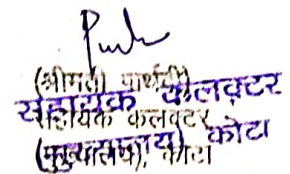 (श्रीमती पार्थवी)
सहायक कलक्टर
सहायक कलक्टर
(मुख्यालय) कोटा
(मुख्यालय), कोटा